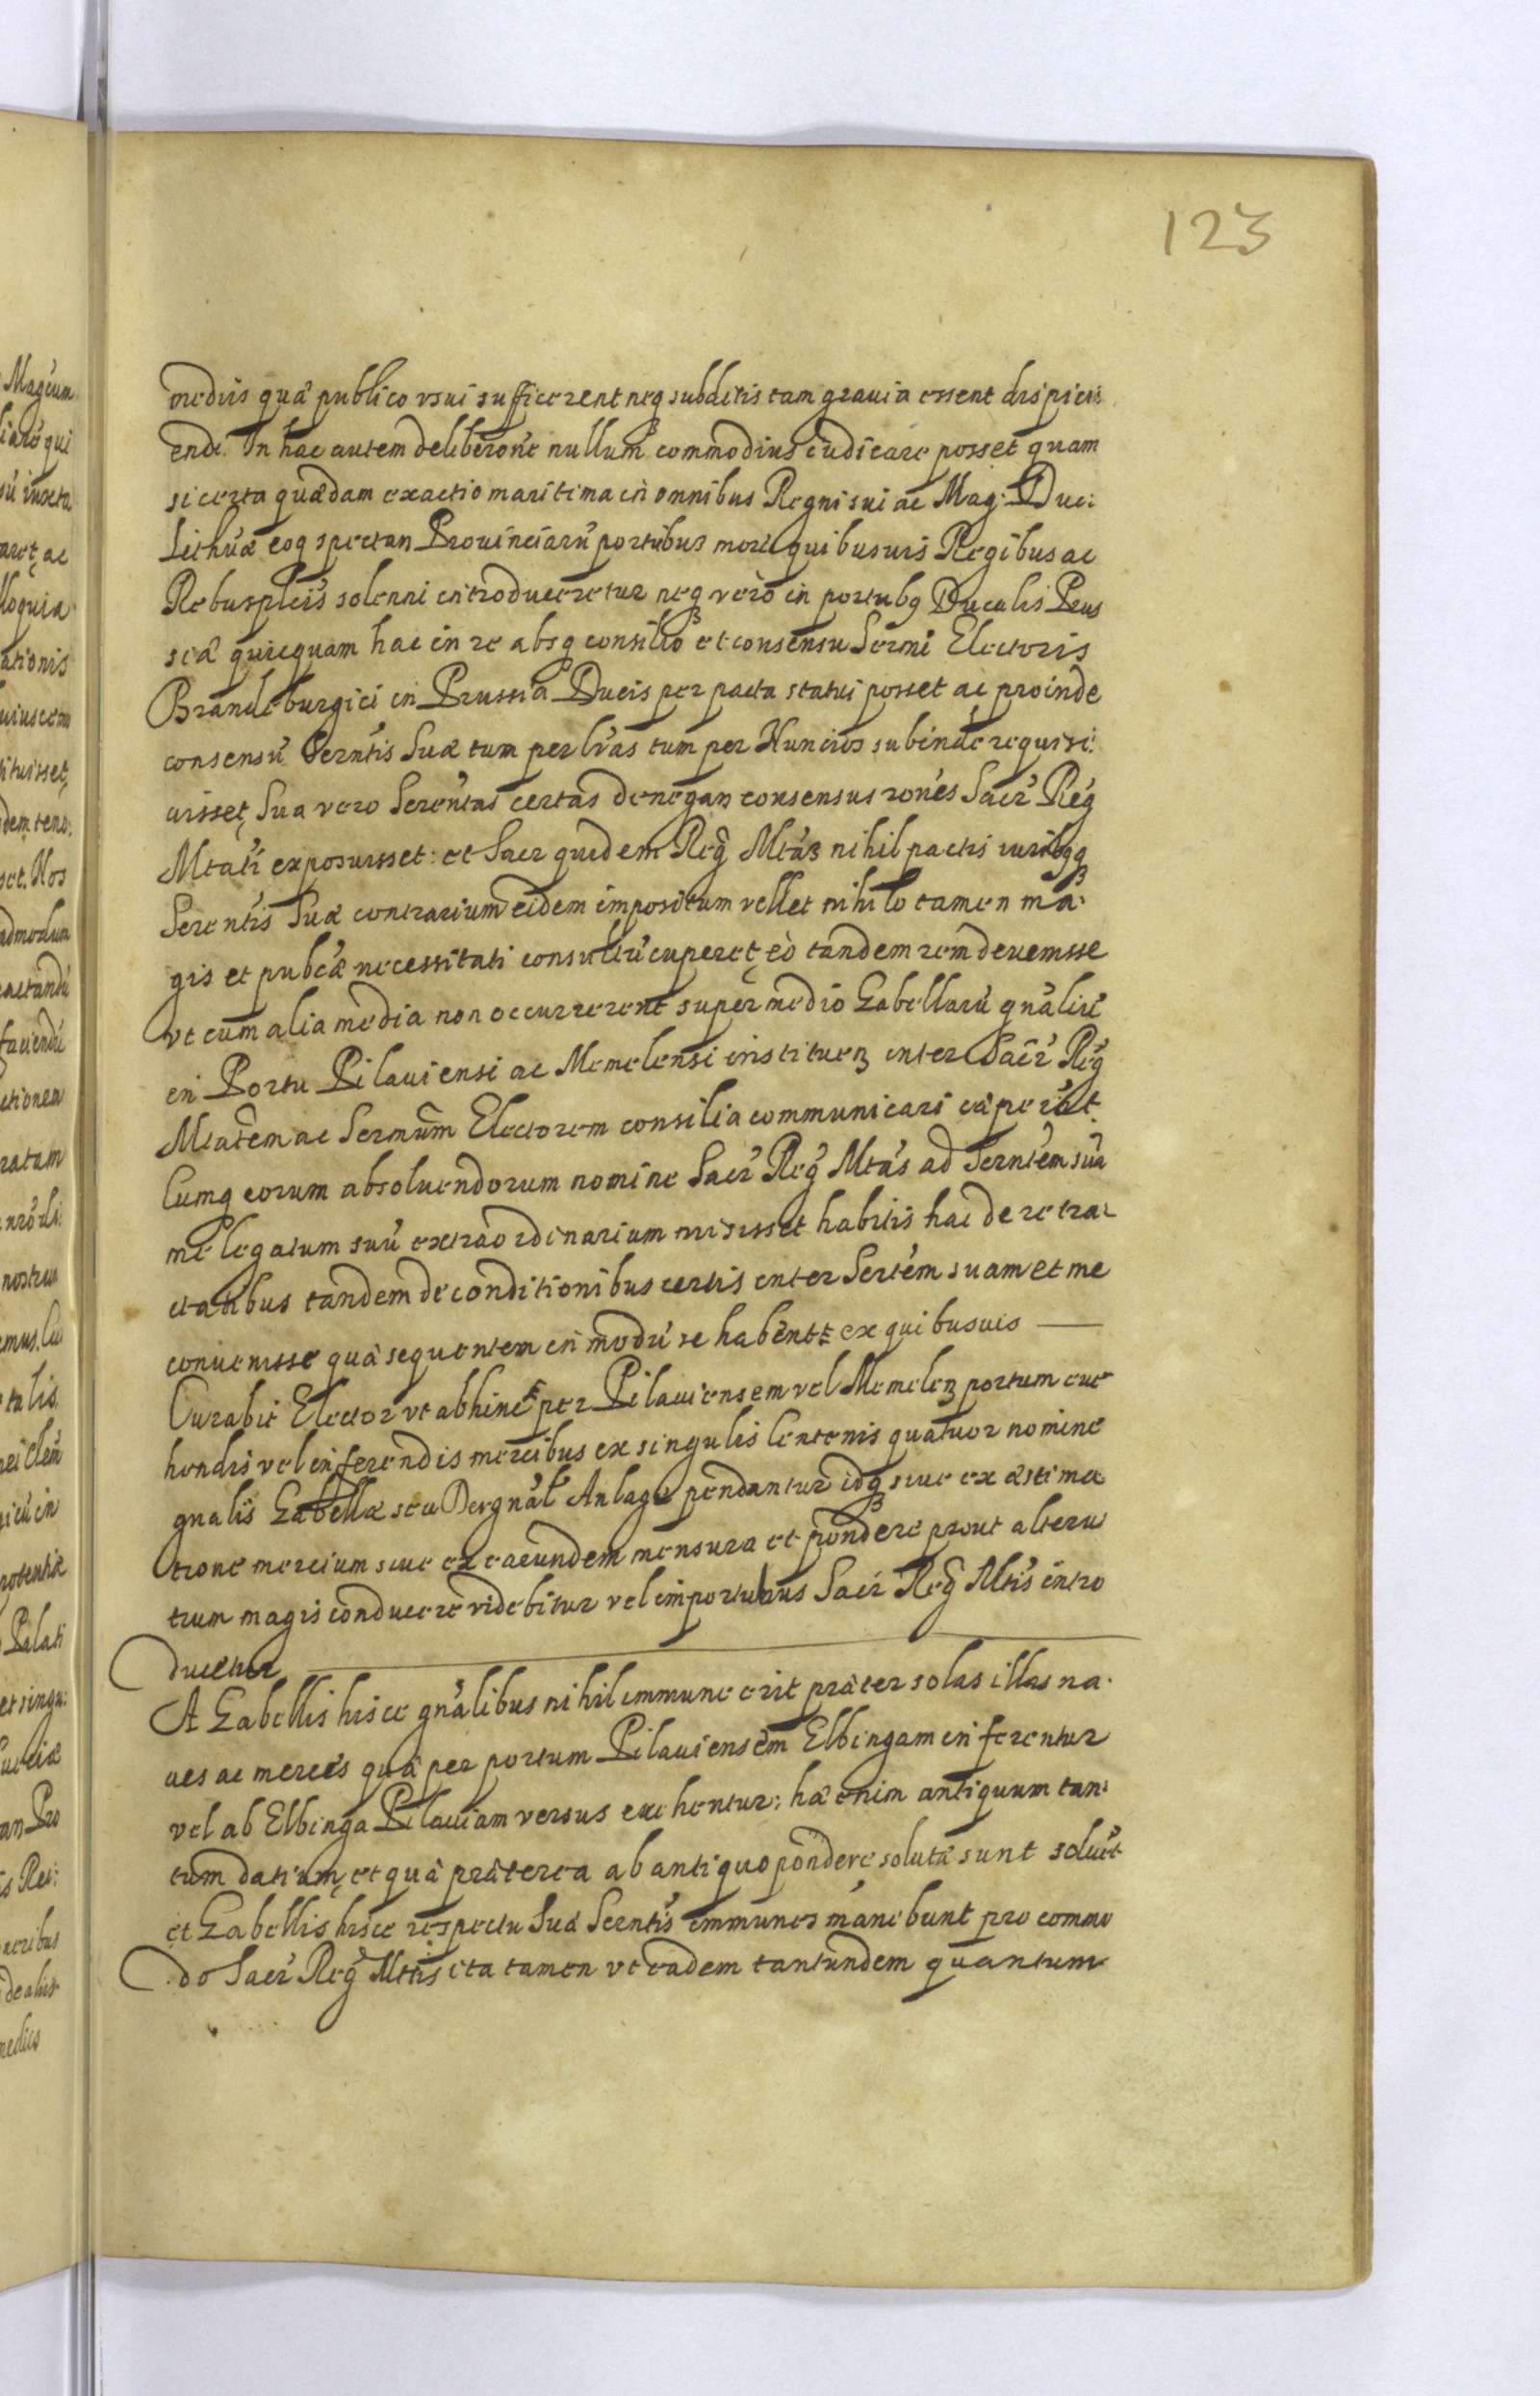 123
mediis quæ publico vsui sufficerent neq subditis tam grauia essent dispicii
endi. In hac autem deliberone nullum commodius iudicare posset quam
si certa quædam exactio maritima in omnibus Regni sui ac Mag: Duc:
Lithuæ eoq spectan Prouinciarū portubus more quibusuis Regibus ac
Rebuspleis solenni introduceretur neq vero in portubq Ducalis Prus
siæ quicquam hac in re absq consilio et consensu Sermi Electoris
Brandeburgici in Prussia Ducis per pacta statui posset ac proinde
consensū Serntis Suæ tum per lras tum per Nuncios subinde requisi:
uisset, Sua vero Serentas certas denegan consensus rones Sacr Reg
Mtati exposuisset: et Sacr quidem Reg Mtas nihil pactis iuribqq
Serentis Suæ contrarium eidem impositum vellet nihilo tamen ma:
gis et pubcæ necessitati consultū cuperet, eò tandem rem deuenisse
vt cum alia media non occurrerent super medio Gabellarū gnaliū
in Portu Pilauiensi ac Memelensi instituen inter Sacr Reg
Mtatem ac Sermum Electorem consilia communicari cæperūt.
Cumq eorum absoluendorum nomine Sacr Reg Mtas ad Serntem suā
me legatum suū extraordinarium misisset habitis hac de re tra:
ctatibus tandem de conditionibus certis inter Sertem suam et me
conuenisse quæ sequentem in modū se habent: ex quibusuis
Curabit Elector vt abhinc per Pilauiensem vel Memelen portum eue
hendis vel inferendis mercibus ex singulis Centenis quatuor nomine
gnalis Gabellæ seu Dergnal Anlage pendantur idq siue ex æstima
tione mercium siue ex earundem mensura et pondere prout alteru
trum magis conducere videbitur vel in portubus Sacr Reg Mtis intro
ducetur
A Gabellis hisce gnalibus nihil immune erit præter solas illas na:
ues ac merces quæ per portum Pilauiensem Elbingam inferentur
vel ab Elbinga Pilauiam versus euehentur: hæ enim antiquum tan:
tum datium, et quæ præterea ab antiquo pondere soluta sunt soluēt
et Gabellis hisce respectu Suæ Serntis immunes manebunt pro commo
do Sacr Reg Mttis ita tamen vt eadem tantundem quantum